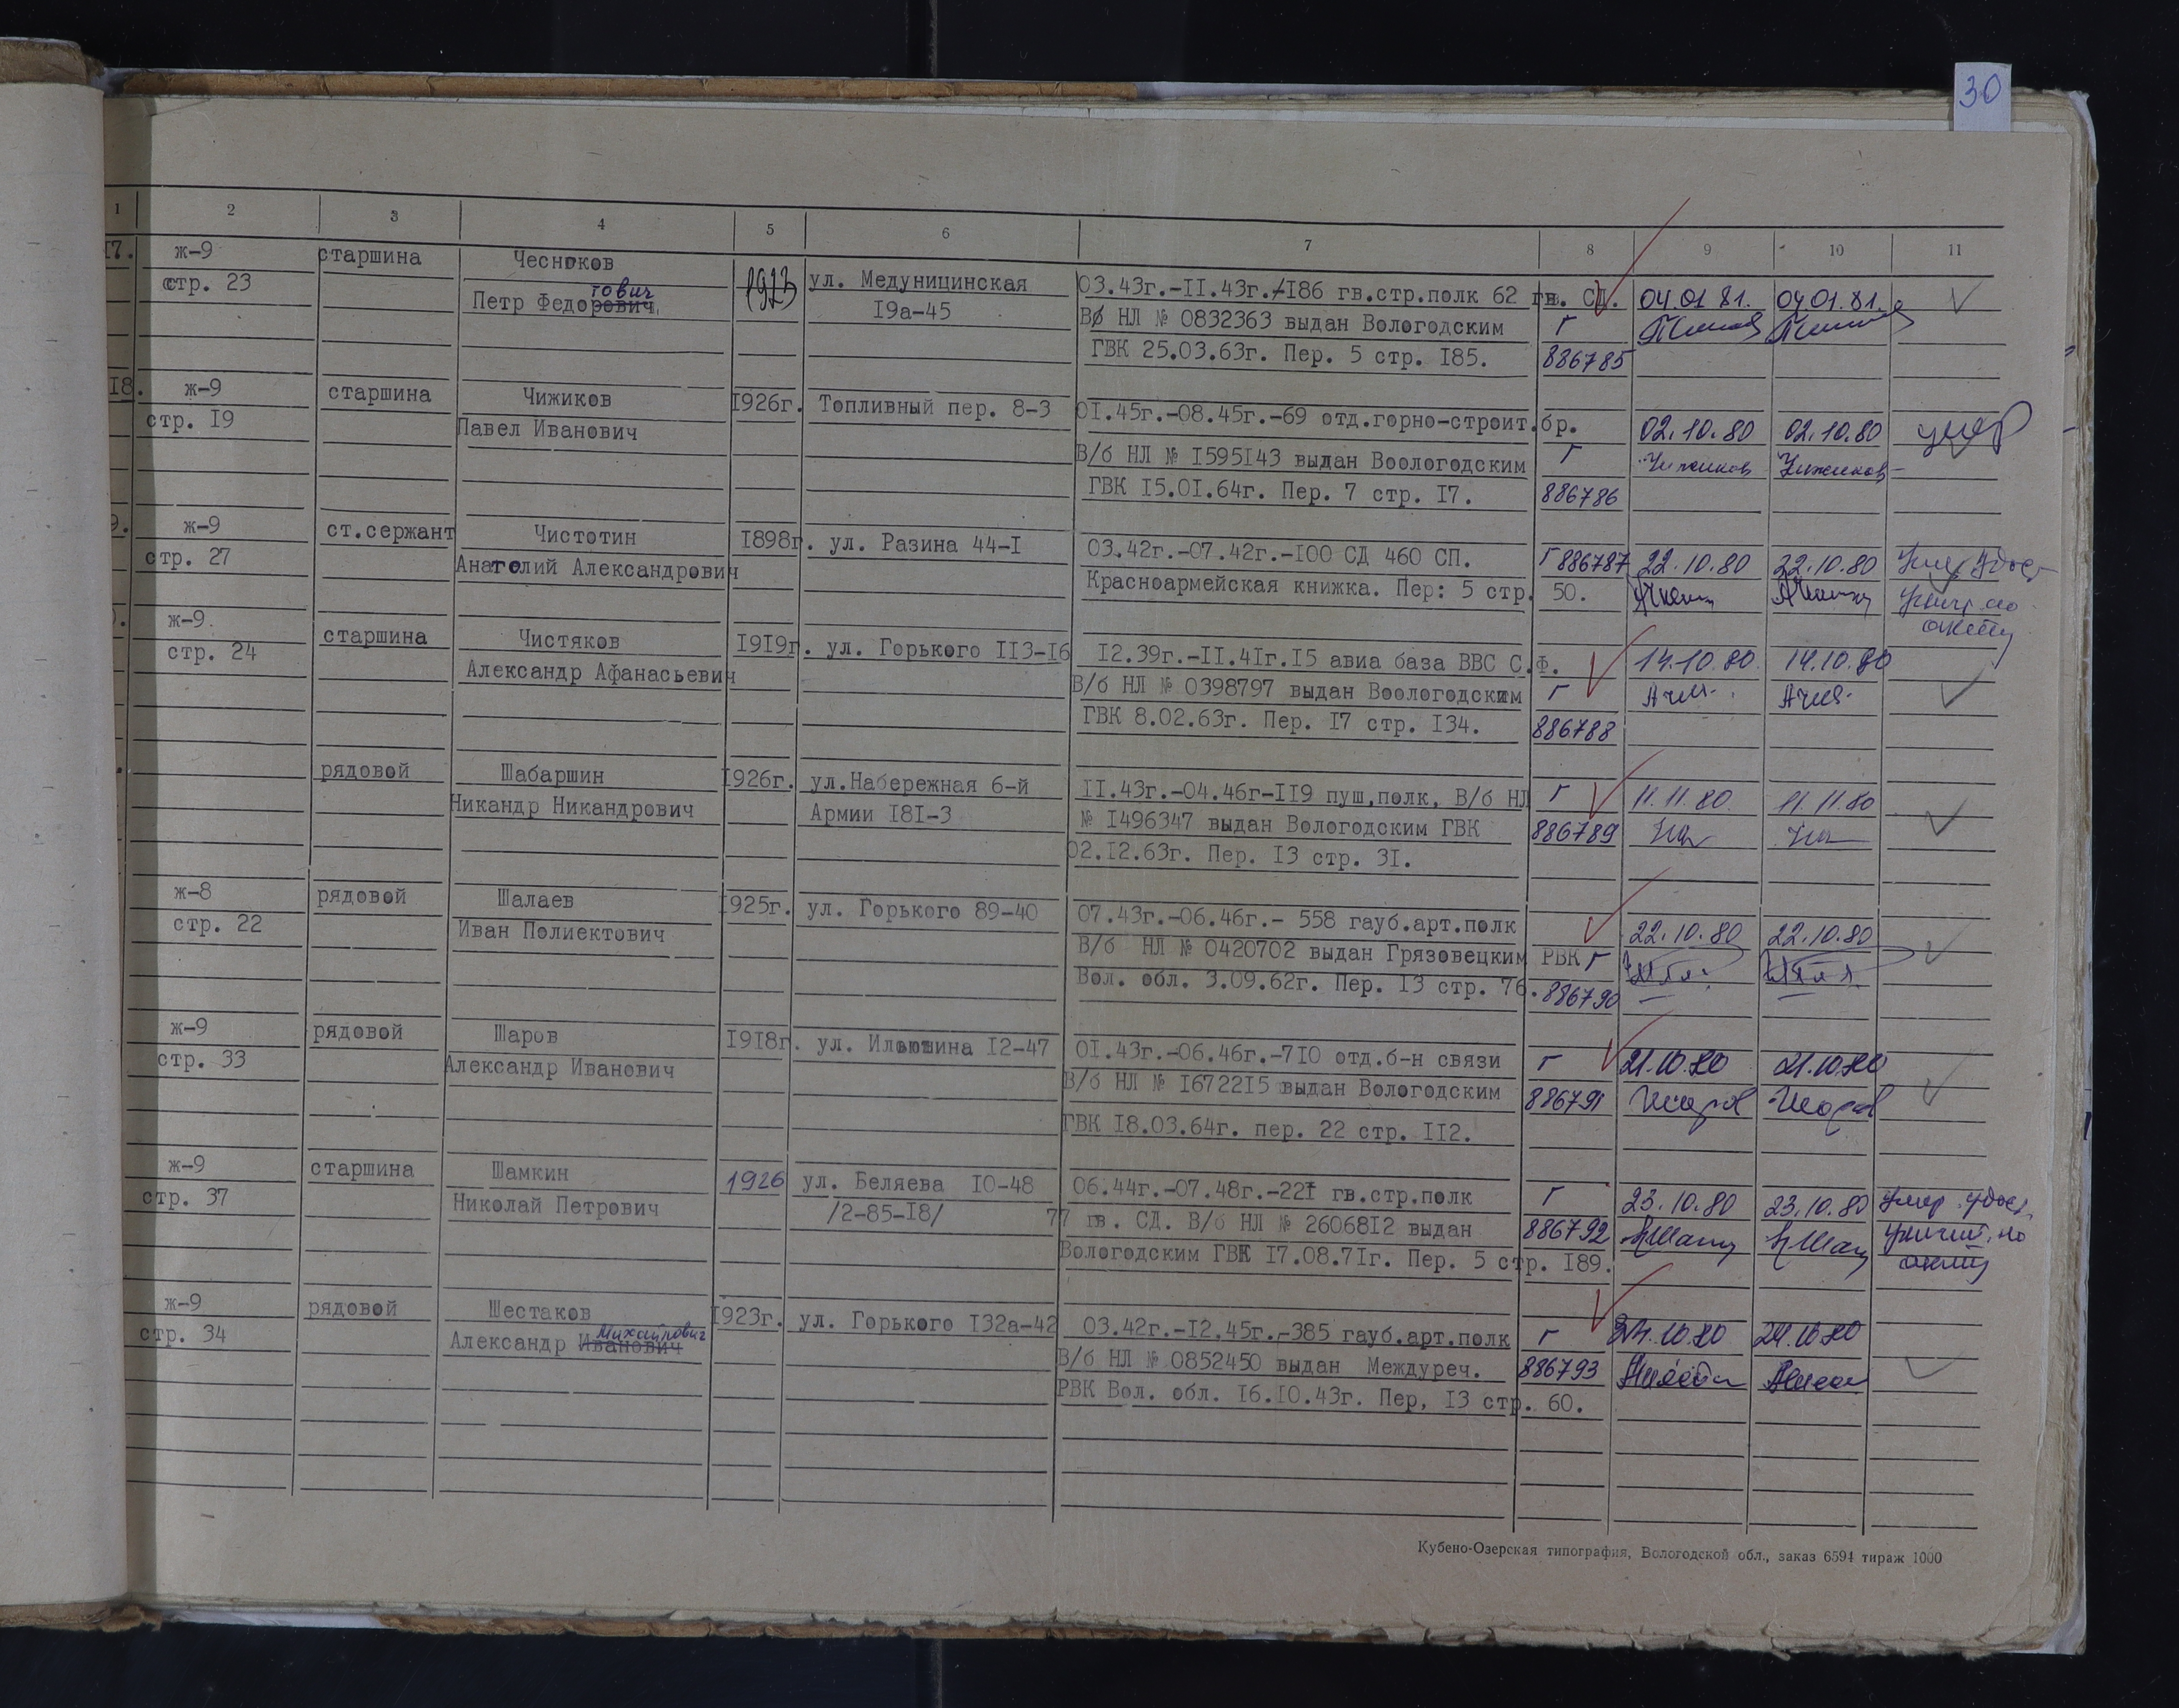 30
1 2 3 4 5 6 7 8 9 10 11
17. ж-9 старшина Чесноков
стр. 23 Петр Федорович тович 1923 ул. Медуницинская 03.43г.-II.43г.-I86 гв.стр.полк 62 гв. СД. 04.01.81. 04.01.81.
I9а-45 ВØ НЛ № 0832363 выдан Вологодским Г
ГВК 25.03.63г. Пер. 5 стр. I85. 886785
I8. ж-9 старшина Чижиков I926г. Топливный пер. 8-3 0I.45г.-08.45г.-69 отд.горно-строит.бр.
стр. I9 Павел Иванович 02.10.80 02.10.80 умер
В/б НЛ № I595I43 выдан Воологодским Г Чижиков Чижиков
ГВК I5.0I.64г. Пер. 7 стр. I7. 886786
9. ж-9 ст.сержант Чистотин I898г. ул. Разина 44-I 03.42г.-07.42г.-I00 СД 460 СП. Г 886787 22.10.80 22.10.80
стр. 27 Анатолий Александрович Красноармейская книжка. Пер: 5 стр. 50.
ж-9. старшина Чистяков I9I9г. ул. Горького II3-I6 I2.39г.-II.4Iг.I5 авиа база ВВС С.Ф. 14.10.80. 14.10.80
стр. 24 Александр Афанасьевич В/б НЛ № 0398797 выдан Воологодским Г
ГВК 8.02.63г. Пер. I7 стр. I34. 886788
рядовой Шабаршин I926г. ул.Набережная 6-й II.43г.-04.46г-II9 пуш.полк, В/б НЛ Г 11.11.80. 11.11.80
Никандр Никандрович Армии I8I-3 № I496347 выдан Вологодским ГВК 886789
02.I2.63г. Пер. I3 стр. 3I.
ж-8 рядовой Шалаев I925г. ул. Горького 89-40 07.43г.-06.46г.- 558 гауб.арт.полк 22.10.80 22.10.80
стр. 22 Иван Полиектович В/б НЛ № 0420702 выдан Грязовецким РВК Г
Вол. обл. 3.09.62г. Пер. I3 стр. 76. 886790
ж-9 рядовой Шаров I9I8г. ул. Ильюшина I2-47 0I.43г.-06.46г.-7I0 отд.б-н связи Г 21.10.80 21.10.80
стр. 33 Александр Иванович В/б НЛ № I6722I5 выдан Вологодским 886791 Шаров Шаров
ГВК I8.03.64г. пер. 22 стр. II2.
ж-9 старшина Шамкин 1926 ул. Беляева I0-48 06.44г.-07.48г.-22I гв.стр.полк Г 23.10.80 23.10.80 умер. удост.
стр. 37 Николай Петрович /2-85-I8/ 77 гв. СД. В/б НЛ № 26068I2 выдан 886792
Вологодским ГВК I7.08.7Iг. Пер. 5 стр. I89.
ж-9 рядовой Шестаков I923г. ул. Горького I32а-42 03.42г.-I2.45г.-385 гауб.арт.полк Г 24.10.80 24.10.80
стр. 34 Александр Иванович Михайлович В/б НЛ № 0852450 выдан Междуреч. 886793
РВК Вол. обл. I6.I0.43г. Пер, I3 стр. 60.
Кубено-Озерская типография, Вологодской обл., заказ 6594 тираж 1000